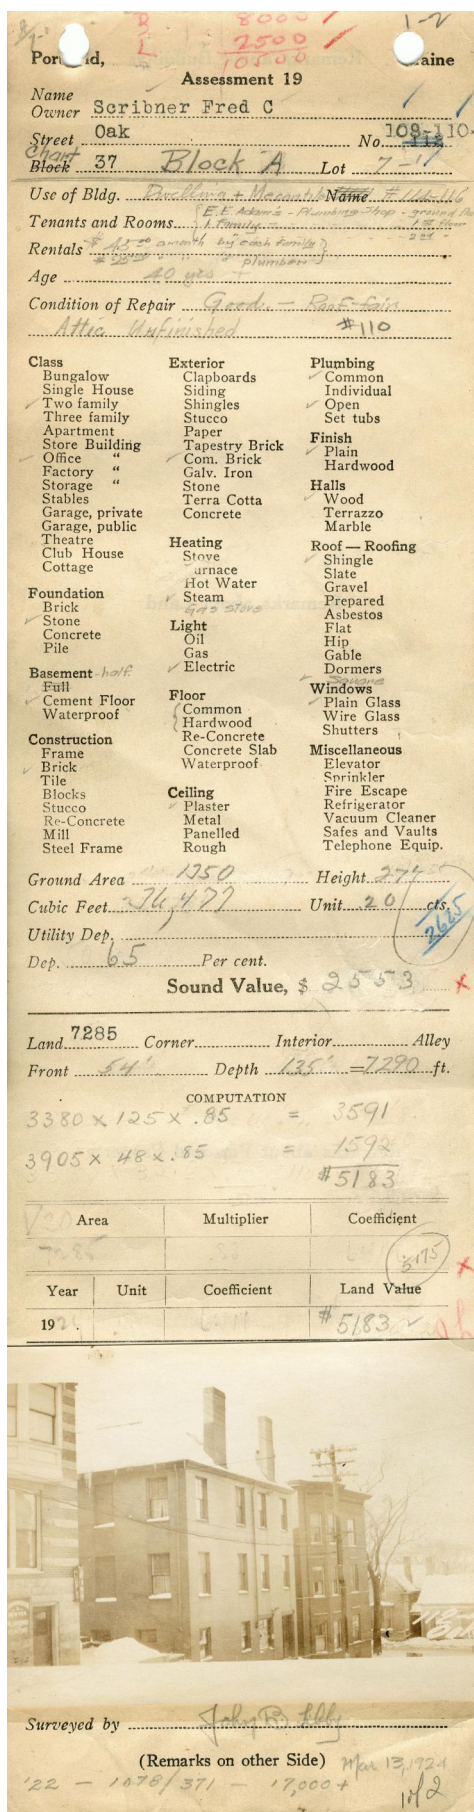 B 8000
L 2500
$ 10500
1-2
Portland, Maine
Assessment 19
Name
Owner Scribner Fred C
Street Oak No. 108-110
Chart
Block 37 Block A Lot 7-17
Use of Bldg. Dwelling + Mercantile Name # 114-116
Tenants and Rooms E.E. Adams - Plumbing Shop - ground floor
1 Family - 1st floor
Rentals $ 45.00 a month by each family
" " " plumber
Age 40 yrs
Condition of Repair Good. — Roof-fair
Attic Unfinished #110
Class
Bungalow
Single House
✓ Two family
Three family
Apartment
Store Building
✓ Office "
Factory "
Storage "
Stables
Garage, private
Garage, public
Theatre
Club House
Cottage
Foundation
Brick
✓ Stone
Concrete
Pile
Basement - half
Full
✓ Cement Floor
Waterproof
Construction
Frame
✓ Brick
Tile
Blocks
Stucco
Re-Concrete
Mill
Steel Frame
Exterior
Clapboards
Siding
Shingles
Stucco
Paper
Tapestry Brick
✓ Com. Brick
Galv. Iron
Stone
Terra Cotta
Concrete
Heating
Stove
Furnace
Hot Water
✓ Steam
Gas stove
Light
Oil
Gas
✓ Electric
Floor
Common
Hardwood
Re-Concrete
Concrete Slab
Waterproof
Ceiling
✓ Plaster
Metal
Panelled
Rough
Plumbing
✓ Common
Individual
✓ Open
Set tubs
Finish
✓ Plain
Hardwood
Halls
✓ Wood
Terrazzo
Marble
Roof — Roofing
✓ Shingle
Slate
Gravel
Prepared
Asbestos
Flat
Hip
Gable
Dormers
✓ Square
Windows
✓ Plain Glass
Wire Glass
Shutters
Miscellaneous
Elevator
Sprinkler
Fire Escape
Refrigerator
Vacuum Cleaner
Safes and Vaults
Telephone Equip.
Ground Area 1350 Height 27
Cubic Feet 36,477 Unit 20 cts.
2625
Utility Dep.
Dep. 65 Per cent.
Sound Value, $ 2553 x
Land 7285 Corner Interior Alley
Front 54' Depth 135' = 7290 ft.
COMPUTATION
3380 x 125 x .85 = 3591
3905 x 48 x .85 = 1592
$5183
Area Multiplier Coefficient
7285
5175 x
Year Unit Coefficient Land Value
192 $ 5183
Surveyed by John R. Libby
(Remarks on other Side) Mar 13, 1924
'22 - 1078/371 - 17,000+
1 of 2